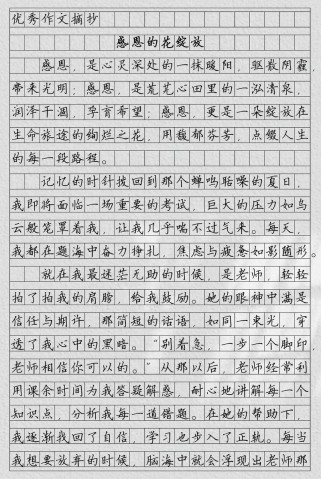 优秀作文摘抄
感恩的花绽放
感恩，是心灵深处的一抹暖阳，驱散阴霾，
带来光明；感恩，是荒芜心田里的一泓清泉，
润泽干涸，孕育希望；感恩，更是一朵绽放在
生命旅途的绚烂之花，用馥郁芬芳，点缀人生
的每一段路程。
记忆的时针拨回到那个蝉鸣聒噪的夏日，
我即将面临一场重要的考试，巨大的压力如乌
云般笼罩着我，让我几乎喘不过气来。每天，
我都在题海中奋力挣扎，焦虑与疲惫如影随形。
就在我最迷茫无助的时候，是老师，轻轻
拍了拍我的肩膀，给我鼓励。她的眼神中满是
信任与期许，那简短的话语，如同一束光，穿
透了我心中的黑暗。“别着急，一步一个脚印，
老师相信你可以的。”从那以后，老师经常利
用课余时间为我答疑解惑，耐心地讲解每一个
知识点，分析我每一道错题。在她的帮助下，
我逐渐找回了自信，学习也步入了正轨。每当
我想要放弃的时候，脑海中就会浮现出老师那